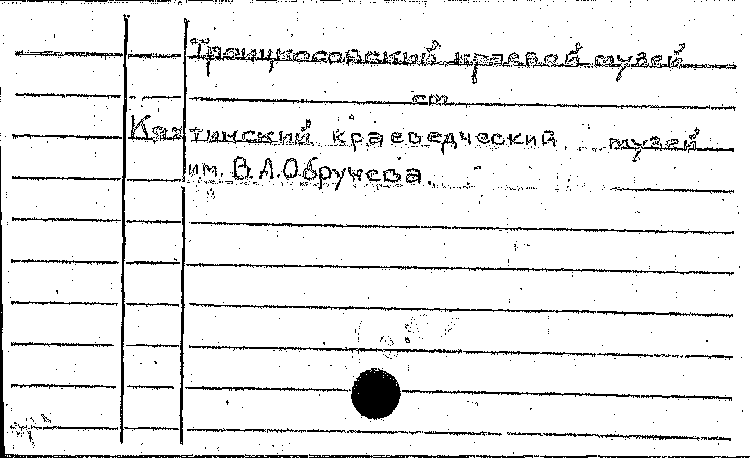 Троицкосовский краевой музей
см
Кяхтинский краеведческий музей
им. В.А.Обручева.